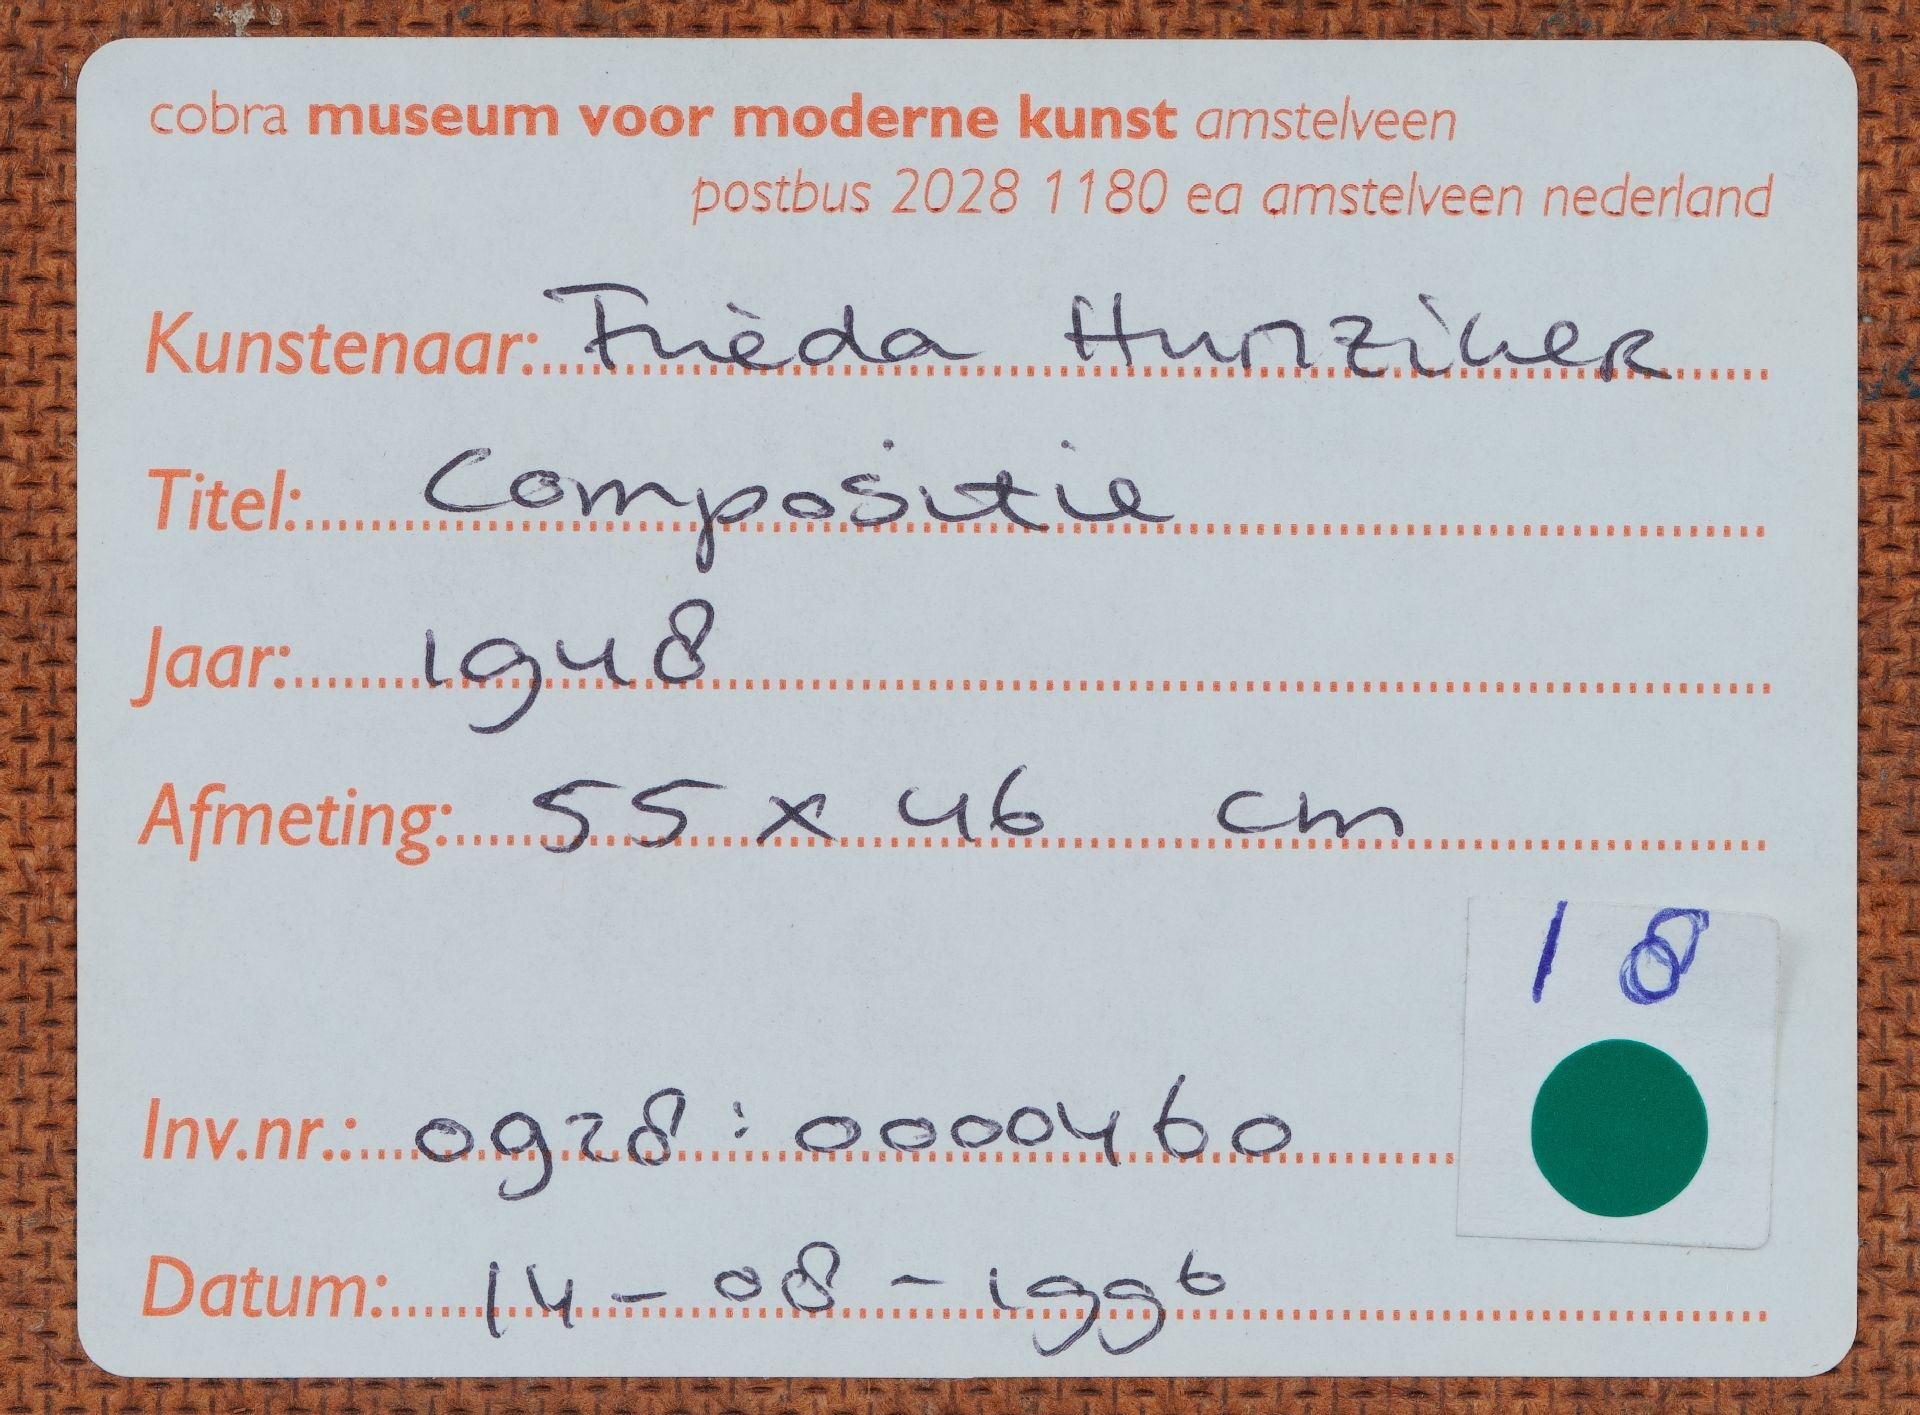 cobra museum voor moderne kunst amstelveen
postbus 2028 1180 ea amstelveen nederland
Kunstenaar: Frieda Hunziker
Titel: Compositie
Jaar: 1948
Afmeting: 55 x 46 cm
18
Inv.nr.: 0928:0000460
Datum: 14-08-1996